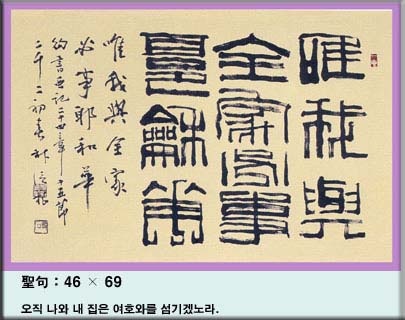 唯我與
全家必事
耶和華
唯我與全家
必事耶和華
約書亞記二十四章十五節
二千二初春
聖句 : 46 × 69
오직 나와 내 집은 여호와를 섬기겠노라.